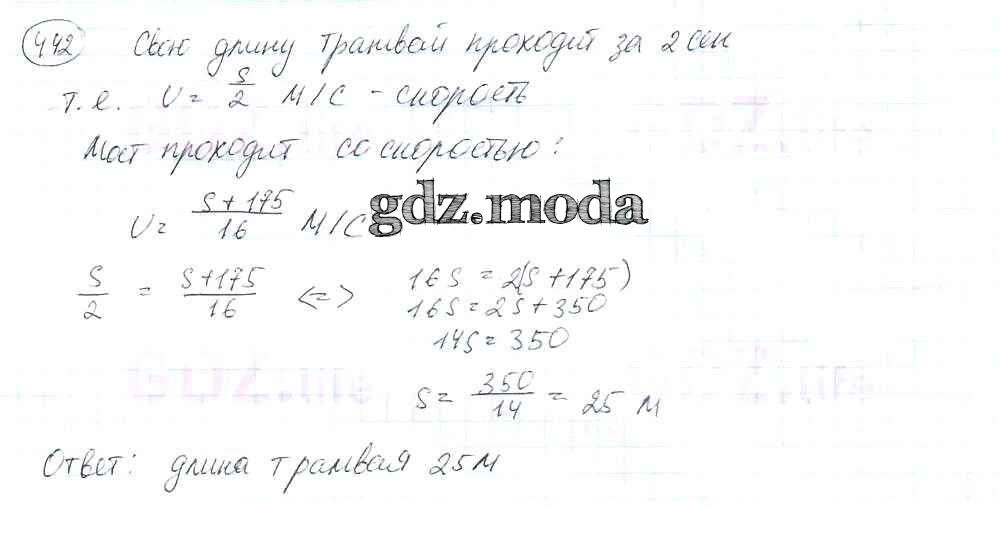 442 Свою длину трамвай проходит за 2 сек
т.е. v = s/2 м/с - скорость
Мост проходит со скоростью:
v = (s + 175)/16 м/с
gdz.moda
s/2 = (s + 175)/16 <=> 16s = 2(s + 175)
16s = 2s + 350
14s = 350
s = 350/14 = 25 м
Ответ: длина трамвая 25м